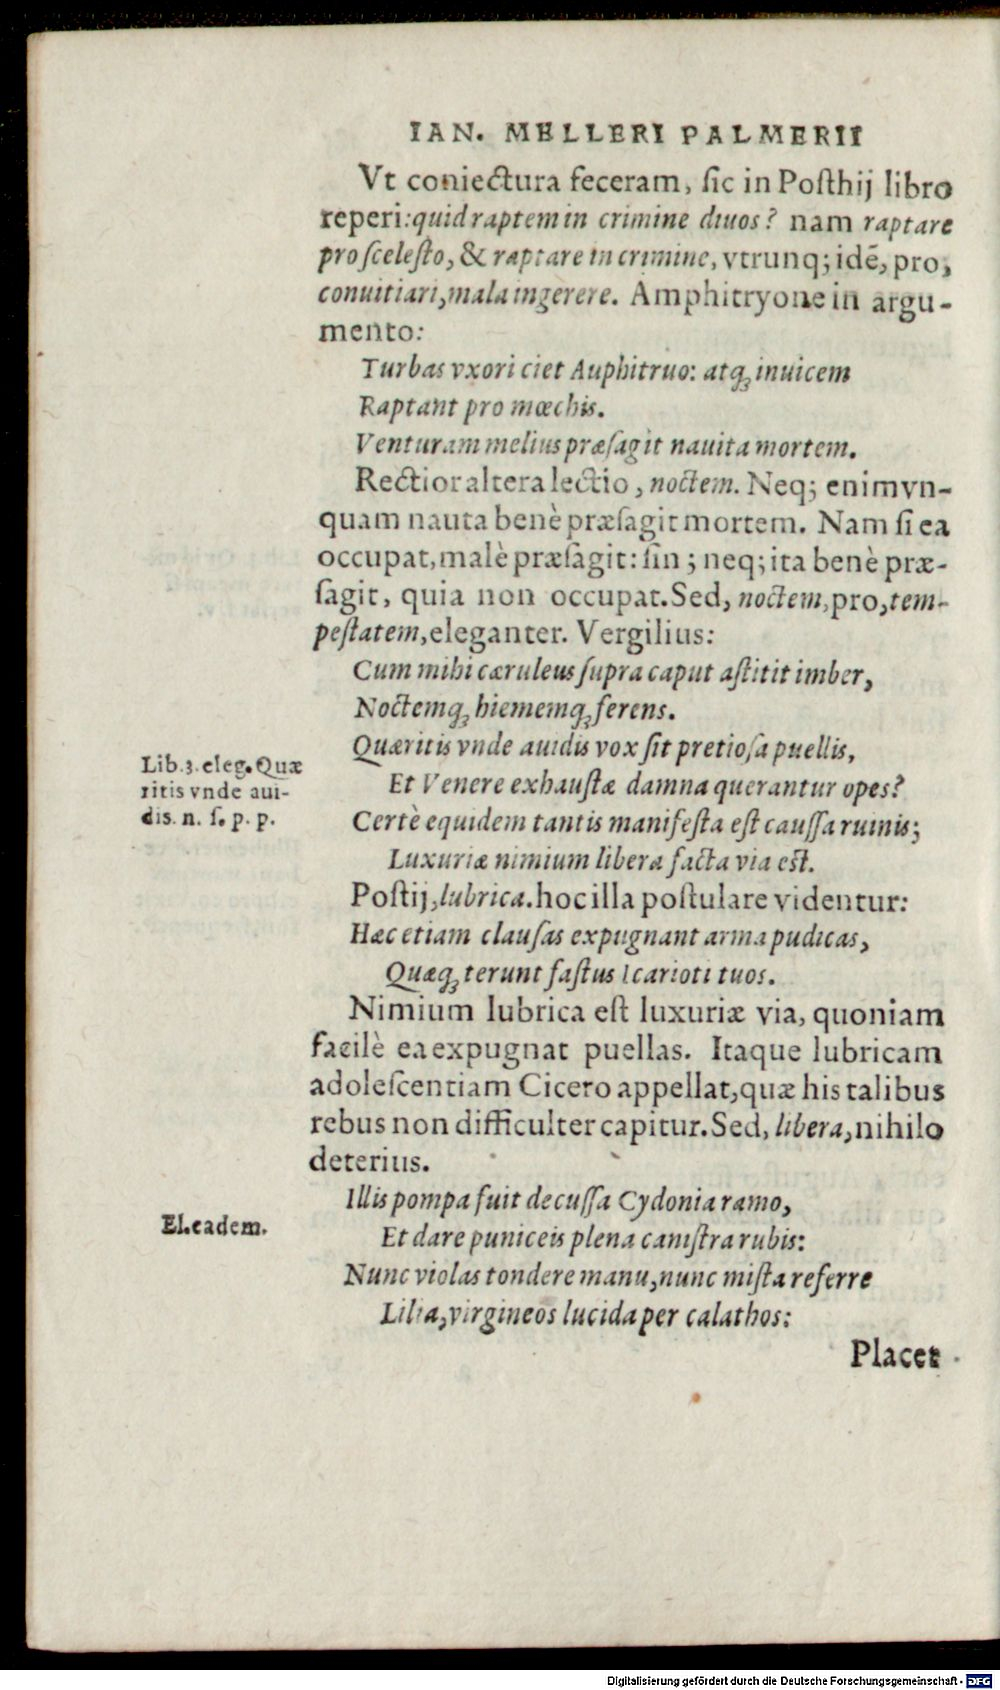 IAN. MELLERI PALMERII
Vt coniectura feceram, ſic in Poſthij libro
reperi: quid raptem in crimine diuos? nam raptare
pro ſceleſto, & raptare in crimine, vtrunq; idē, pro,
conuitiari, mala ingerere. Amphitryone in argu-
mento:
Turbas vxori ciet Auphitruo: atq; inuicem
Raptant pro mœchis.
Venturam melius præſagit nauita mortem.
Rectior altera lectio, noctem. Neq; enim vn-
quam nauta benè præſagit mortem. Nam ſi ea
occupat, malè præſagit: ſin; neq; ita benè præ-
ſagit, quia non occupat. Sed, noctem, pro, tem-
peſtatem, eleganter. Vergilius:
Cum mihi cæruleus ſupra caput aſtitit imber,
Noctemq; hiememq; ferens.
Lib. 3. eleg. Quæ
ritis vnde aui-
dis. n. ſ. p. p.
Quæritis vnde auidis vox ſit pretioſa puellis,
Et Venere exhauſtæ damna querantur opes?
Certè equidem tantis manifeſta eſt cauſſa ruinis;
Luxuriæ nimium libera facta via eſt.
Poſtij, lubrica. hoc illa poſtulare videntur:
Hæc etiam clauſas expugnant arma pudicas,
Quæq; terunt faſtus Icarioti tuos.
Nimium lubrica eſt luxuriæ via, quoniam
facilè ea expugnat puellas. Itaque lubricam
adoleſcentiam Cicero appellat, quæ his talibus
rebus non difficulter capitur. Sed, libera, nihilo
deterius.
El. eadem.
Illis pompa fuit decuſſa Cydonia ramo,
Et dare puniceis plena caniſtra rubis:
Nunc violas tondere manu, nunc miſta referre
Lilia, virgineos lucida per calathos:
Placet
Digitalisierung gefördert durch die Deutsche Forschungsgemeinschaft - DFG